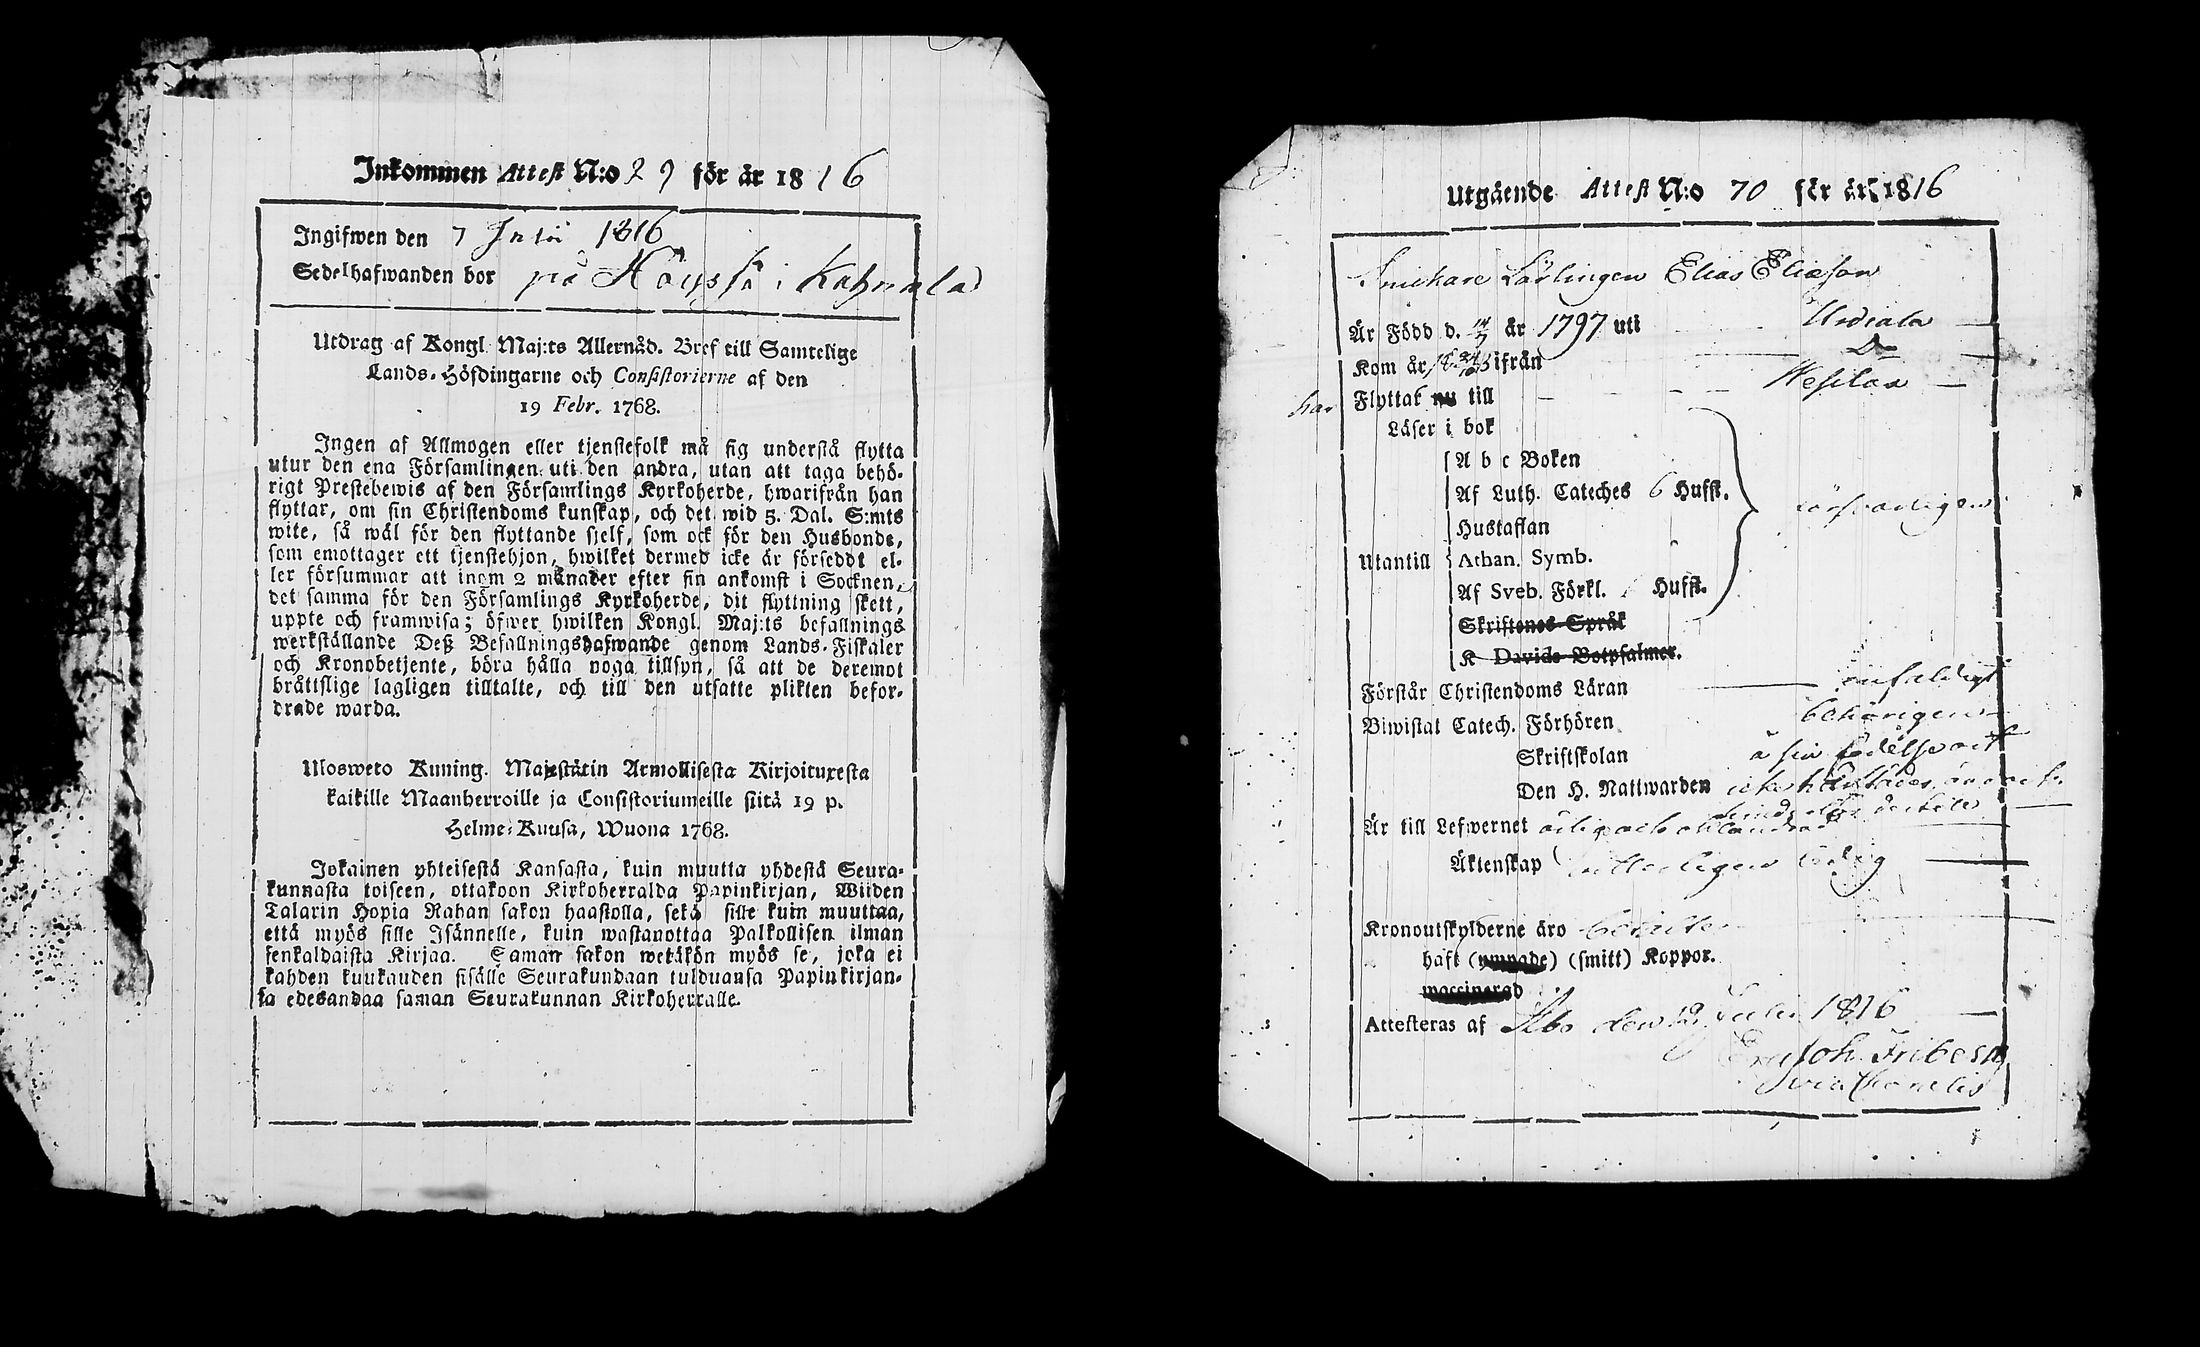 Inkommen Attest N:o 29 för år 1816
Ingifwen den 7 Julii 1816
Sedelhafwanden bor på i
Utdrag af Kongl. Maj:ts Allernåd. Bref till Samtelige
Lands-Höfdingarne och Consistorierne af den
19 Febr. 1768.
Ingen af Allmogen eller tjenstefolk må sig understå flytta
utur den ena Församlingen uti den andra, utan att taga behö-
rigt Prestebewis af den Församlings Kyrkoherde, hwarifrån han
flyttar, om sin Christendoms kunskap, och det wid 5. Dal. S:mts
wite, så wäl för den flyttande sjelf, som ock för den Husbonde,
som emottager ett tjenstehjon, hwilket dermed icke är förseddt el-
ler försummar att inom 2 månader efter sin ankomst i Socknen,
det samma för den Församlings Kyrkoherde, dit flyttning skett,
uppte och framwisa; öfwer hwilken Kongl. Maj:ts befallnings
werkställande Deß Befallningshafwande genom Lands-Fiskaler
och Kronobetjente, böra hålla noga tillsyn, så att de deremot
bråttslige lagligen tilltalte, och till den utsatte plikten befor-
drade warda.
Ulosweto Kuning. Majestätin Armollisesta Kirjoituxesta
kaikille Maanherroille ja Consistoriumeille siitä 19 p.
Helme-Kuusa, Wuona 1768.
Jokainen yhteisestä Kansasta, kuin muutta yhdestä Seura-
kunnasta toiseen, ottakoon Kirkoherralda Papinkirjan, Wiiden
Talarin Hopia Rahan sakon haastolla, sekä sille kuin muuttaa,
että myös sille Isännelle, kuin wastanottaa Palkollisen ilman
senkaldaista Kirjaa. Saman sakon wetäkön myös se, joka ei
kahden kuukauden sisälle Seurakundaan tulduansa Papinkirjan-
sa edesandaa saman Seurakunnan Kirkoherralle.
Utgående Attest N:o 70 för år 1816
Snickare Lärlingen Elias Eliasson
Är Född d. 14/7 år 1797 uti Urdiala
Kom år ifrån Do
har Flyttat nu till Wesilax
Läser i bok
A b c Boken
Af Luth. Cateches 6 Hufst.
Hustaflan
försvarligen
Utantill Athan. Symb.
Af Sveb. Förkl. Hufst.
Skriftenes Språk
K Davids Botpsalmer.
Förstår Christendoms Läran enfaldigt
Biwistat Catech. Förhören behörigen
Skriftskolan å sin födelseort
Den H. Nattwarden
Är till Lefwernet ärlig och
Äktenskap ledig
Kronoutskylderne äro betalte
haft (ympade) (smitt) Koppor.
waccinerad
Attesteras af Åbo den Julii 1816
Joh. Friberg